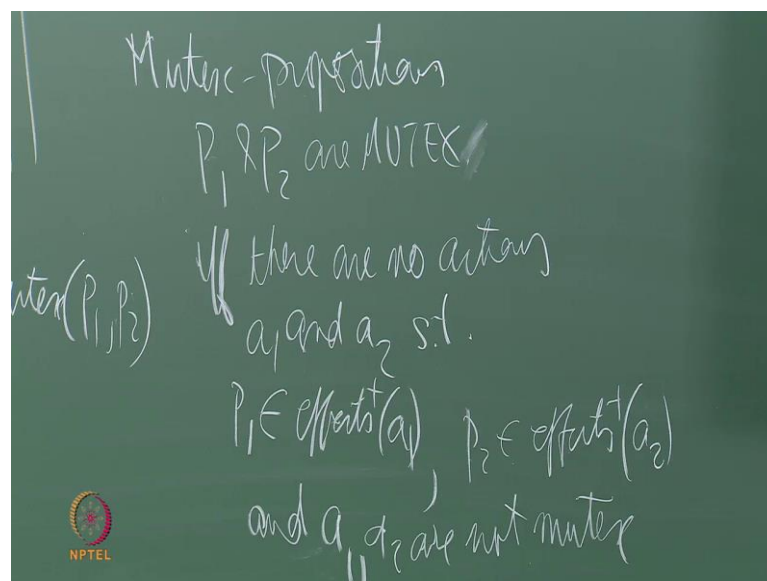 Mutex-propositions
P₁ & P₂ are MUTEX
iff there are no actions
utex(P₁, P₂)
a₁ and a₂ s.t.
P₁ ∈ effects⁺(a₁), P₂ ∈ effects⁺(a₂)
and a₁, a₂ are not mutex
NPTEL